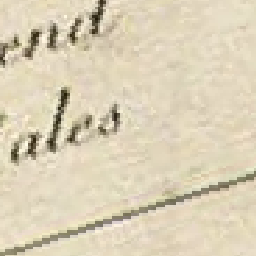 end
ales